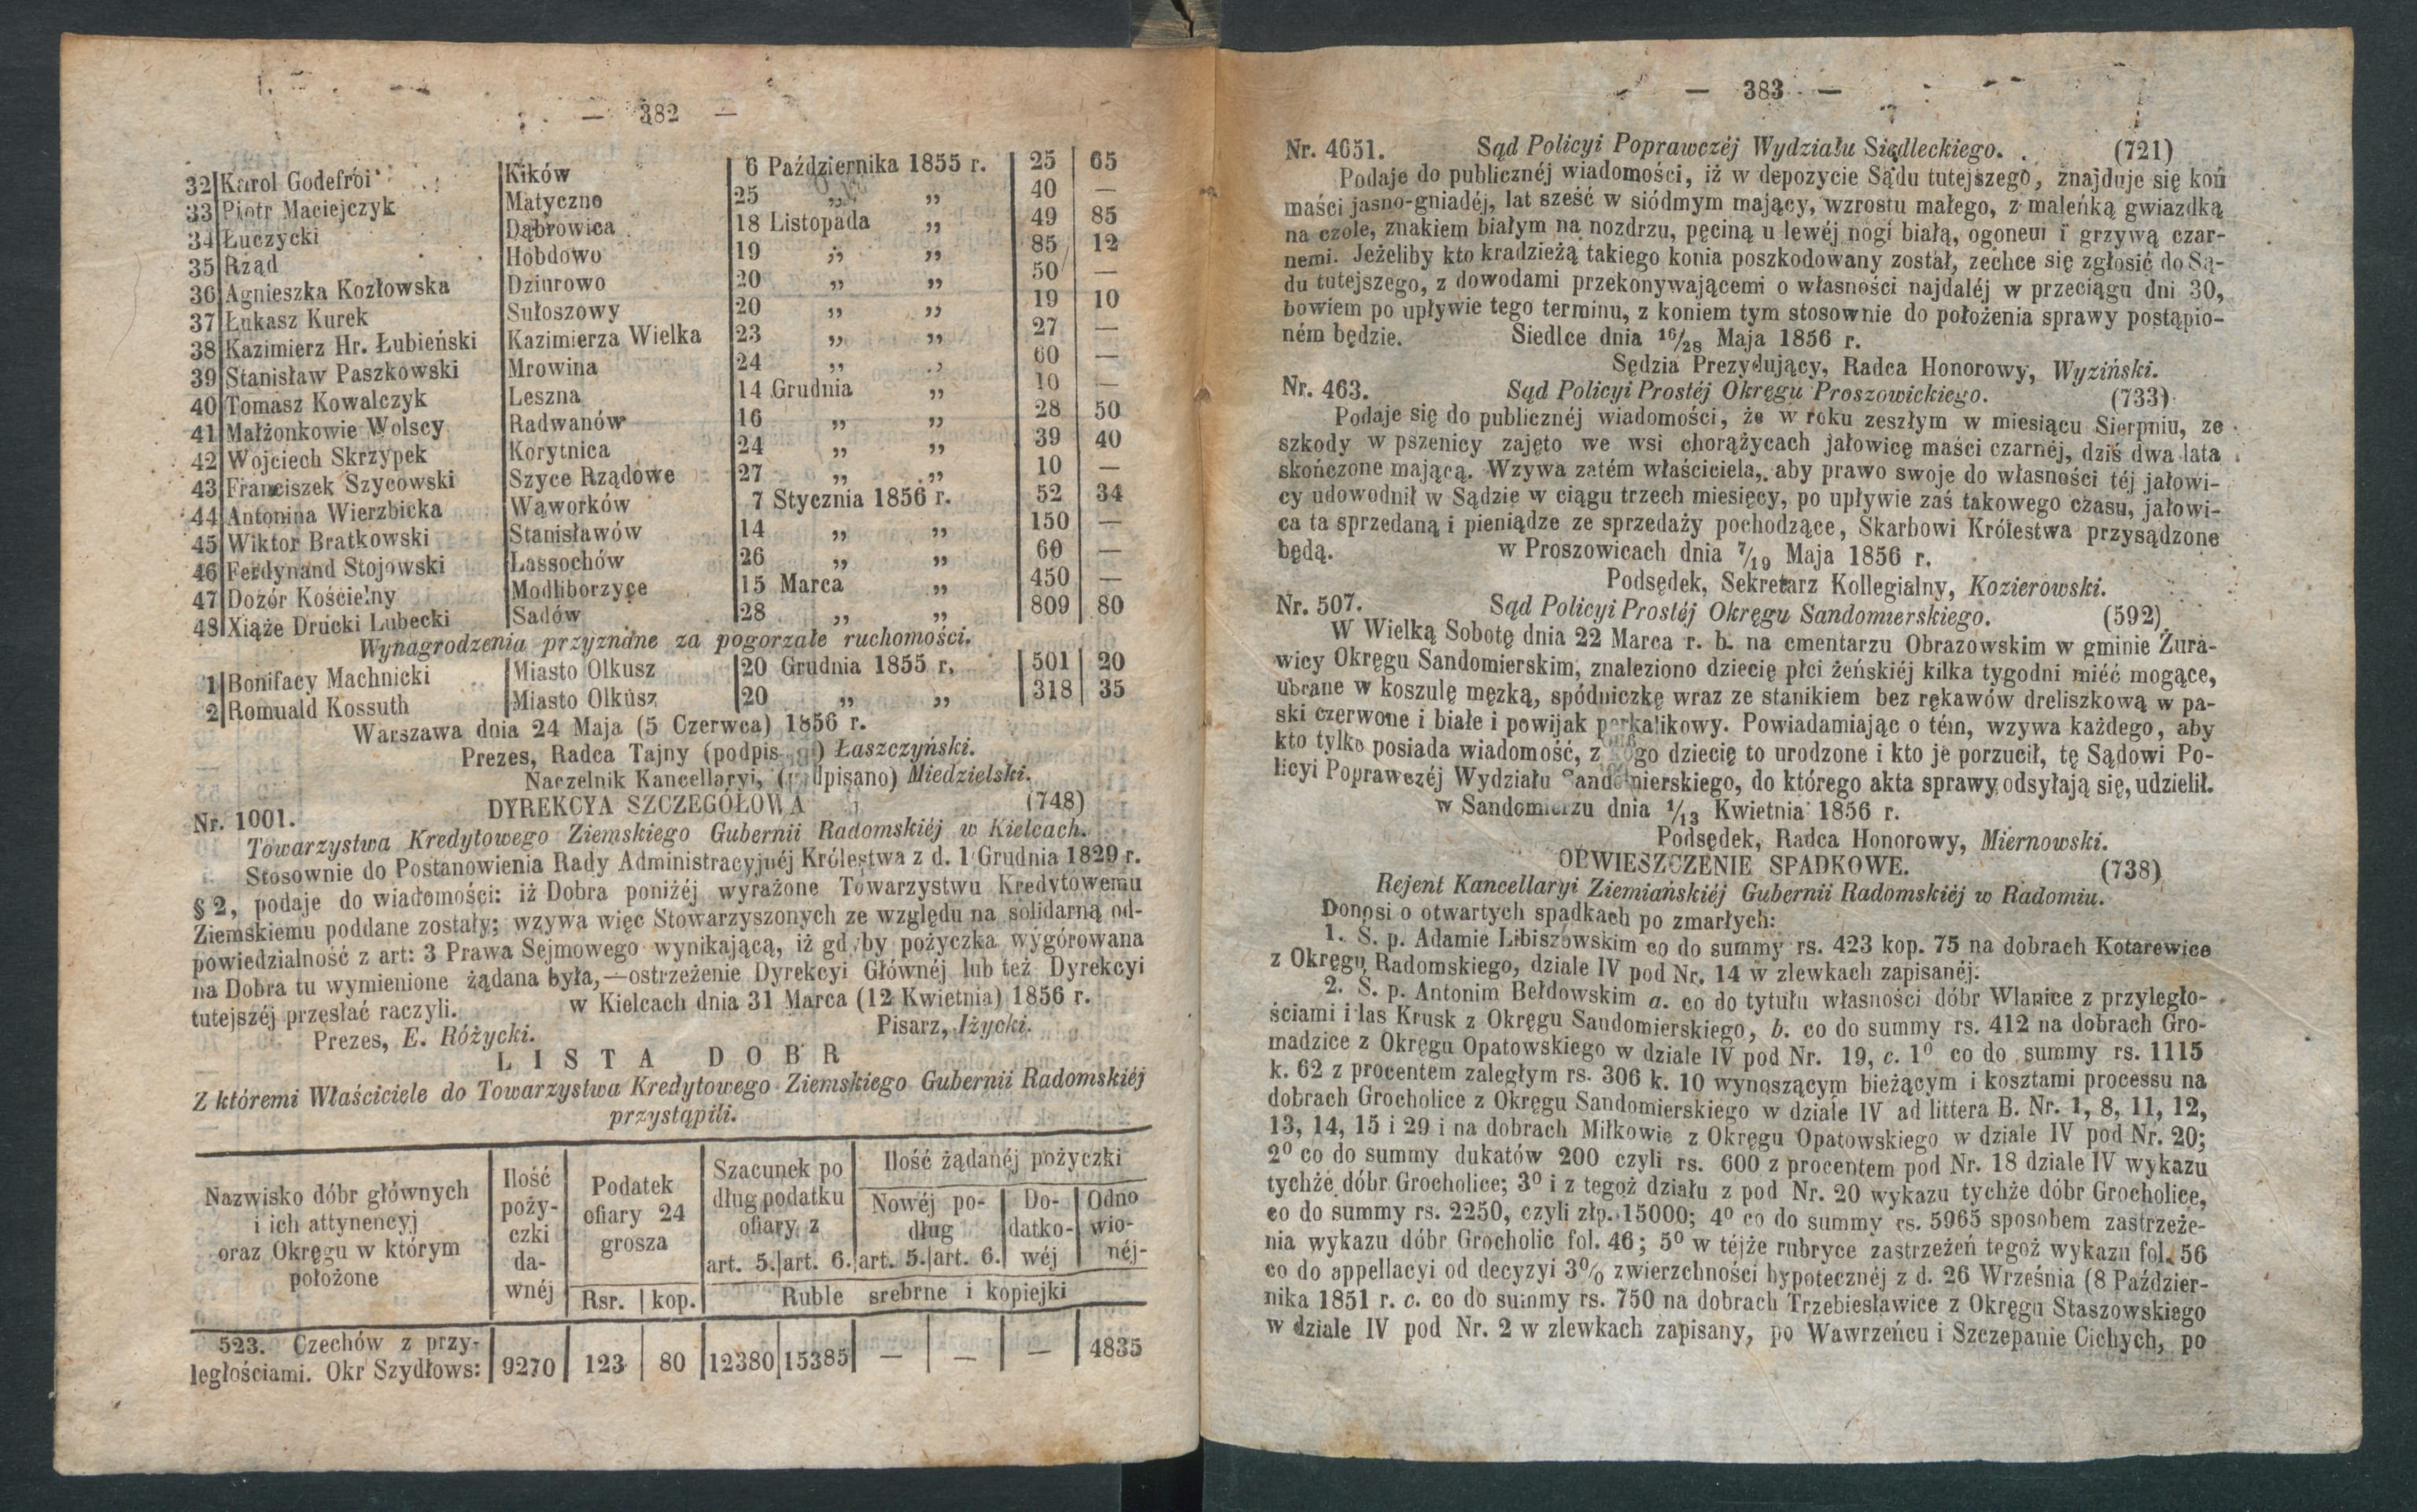 — 382 —
32 Karol Godefroi Kików 6 Października 1855 r. 25 65
33 Piotr Maciejczyk Matyczno 25 „ „ 40 —
34 Łuczycki Dąbrowica 18 Listopada „ 49 85
35 Rząd Hobdowo 19 „ „ 85 12
36 Agnieszka Kozłowska Dziurowo 20 „ „ 50 —
37 Łukasz Kurek Sułoszowy 20 „ „ 19 10
38 Kazimierz Hr. Łubieński Kazimierza Wielka 23 „ „ 27 —
39 Stanisław Paszkowski Mrowina 24 „ „ 60 —
40 Tomasz Kowalczyk Leszna 14 Grudnia „ 10 —
41 Małżonkowie Wolscy Radwanów 16 „ „ 28 50
42 Wojciech Skrzypek Korytnica 24 „ „ 39 40
43 Franciszek Szycowski Szyce Rządowe 27 „ „ 10 —
44 Antonina Wierzbicka Wąworków 7 Stycznia 1856 r. 52 34
45 Wiktor Bratkowski Stanisławów 14 „ „ 150 —
46 Ferdynand Stojowski Łassochów 26 „ „ 60 —
47 Dozór Kościelny Modliborzyce 15 Marca „ 450 —
48 Xiąże Drucki Lubecki Sadów 28 „ „ 809 80
Wynagrodzenia przyznane za pogorzałe ruchomości.
1 Bonifacy Machnicki Miasto Olkusz 20 Grudnia 1855 r. 501 20
2 Romuald Kossuth Miasto Olkusz 20 „ „ 318 35
Warszawa dnia 24 Maja (5 Czerwca) 1856 r.
Prezes, Radca Tajny Łaszczyński.
Naczelnik Kancellaryi, Miedzielski.
Nr. 1001. DYREKCYA SZCZEGÓŁOWA (748)
Towarzystwa Kredytowego Ziemskiego Gubernii Radomskiéj w Kielcach.
Stosownie do Postanowienia Rady Administracyjnéj Królestwa z d. 1 Grudnia 1829 r.
§ 2, podaje do wiadomości: iż Dobra poniżéj wyrażone Towarzystwu Kredytowemu
Ziemskiemu poddane zostały; wzywa więc Stowarzyszonych ze względu na solidarną od-
powiedzialność z art: 3 Prawa Sejmowego wynikającą, iż gdyby pożyczka wygórowana
na Dobra tu wymienione żądana była,—ostrzeżenie Dyrekcyi Głównéj lub też Dyrekcyi
tutejszéj przesłać raczyli. w Kielcach dnia 31 Marca (12 Kwietnia) 1856 r.
Prezes, E. Różycki. Pisarz, Iżycki.
LISTA DOBR
Z któremi Właściciele do Towarzystwa Kredytowego Ziemskiego Gubernii Radomskiéj
przystąpili.
Nazwisko dóbr głównych
i ich attynencyj
oraz Okręgu w którym
położone
Ilość
poży-
czki
da-
wnéj
Podatek
ofiary 24
grosza
Rsr. kop.
Szacunek po
dług podatku
ofiary z
art. 5. art. 6.
Ilość żądanéj pożyczki
Nowéj po-
dług
art. 5. art. 6.
Do-
datko-
wéj
Odno
wio-
néj-
Ruble srebrne i kopiejki
523. Czechów z przy-
ległościami. Okr Szydłows: 9270 123 80 12380 15385 — — — 4835
— 383 —
Nr. 4651. Sąd Policyi Poprawczéj Wydziału Siedleckiego. (721)
Podaje do publicznéj wiadomości, iż w depozycie Sądu tutejszego, znajduje się koń
maści jasno-gniadéj, lat sześć w siódmym mający, wzrostu małego, z maleńką gwiazdką
na czole, znakiem białym na nozdrzu, pęciną u lewéj nogi białą, ogonem i grzywą czar-
nemi. Jeżeliby kto kradzieżą takiego konia poszkodowany został, zechce się zgłosić do Są-
du tutejszego, z dowodami przekonywającemi o własności najdaléj w przeciągu dni 30,
bowiem po upływie tego terminu, z koniem tym stosownie do położenia sprawy postąpio-
ném będzie. Siedlce dnia 16/28 Maja 1856 r.
Sędzia Prezydujący, Radca Honorowy, Wyziński.
Nr. 463. Sąd Policyi Prostéj Okręgu Proszowickiego. (733)
Podaje się do publicznéj wiadomości, że w roku zeszłym w miesiącu Sierpniu, ze
szkody w pszenicy zajęto we wsi chorążycach jałowicę maści czarnéj, dziś dwa lata
skończone mającą. Wzywa zatém właściciela, aby prawo swoje do własności téj jałowi-
cy udowodnił w Sądzie w ciągu trzech miesięcy, po upływie zaś takowego czasu, jałowi-
ca ta sprzedaną i pieniądze ze sprzedaży pochodzące, Skarbowi Królestwa przysądzone
będą. w Proszowicach dnia 7/19 Maja 1856 r.
Podsędek, Sekretarz Kollegialny, Kozierowski.
Nr. 507. Sąd Policyi Prostéj Okręgu Sandomierskiego. (592)
W Wielką Sobotę dnia 22 Marca r. b. na cmentarzu Obrazowskim w gminie Żura-
wicy Okręgu Sandomierskim, znaleziono dziecię płci żeńskiéj kilka tygodni miéć mogące,
ubrane w koszulę męzką, spódniczkę wraz ze stanikiem bez rękawów dreliszkową w pa-
ski czerwone i białe i powijak perkalikowy. Powiadamiając o tém, wzywa każdego, aby
kto tylko posiada wiadomość, z kogo dziecię to urodzone i kto je porzucił, tę Sądowi Po-
licyi Poprawczéj Wydziału Sandomierskiego, do którego akta sprawy odsyłają się, udzielił.
w Sandomierzu dnia 1/13 Kwietnia 1856 r.
Podsędek, Radca Honorowy, Miernowski.
OBWIESZCZENIE SPADKOWE. (738)
Rejent Kancellaryi Ziemiańskiéj Gubernii Radomskiéj w Radomiu.
Donosi o otwartych spadkach po zmarłych:
1. Ś. p. Adamie Libiszowskim co do summy rs. 423 kop. 75 na dobrach Kotarewice
z Okręgu Radomskiego, dziale IV pod Nr. 14 w zlewkach zapisanéj.
2. Ś. p. Antonim Bełdowskim a. co do tytułu własności dóbr Wlanice z przyległo-
ściami i las Krusk z Okręgu Sandomierskiego, b. co do summy rs. 412 na dobrach Gro-
madzice z Okręgu Opatowskiego w dziale IV pod Nr. 19, c. 1⁰ co do summy rs. 1115
k. 62 z procentem zaległym rs. 306 k. 10 wynoszącym bieżącym i kosztami processu na
dobrach Grocholice z Okręgu Sandomierskiego w dziale IV ad littera B. Nr. 1, 8, 11, 12,
13, 14, 15 i 29 i na dobrach Miłkowie z Okręgu Opatowskiego w dziale IV pod Nr. 20;
2⁰ co do summy dukatów 200 czyli rs. 600 z procentem pod Nr. 18 dziale IV wykazu
tychże dóbr Grocholice; 3⁰ i z tegoż działu z pod Nr. 20 wykazu tychże dóbr Grocholice,
co do summy rs. 2250, czyli złp. 15000; 4⁰ co do summy rs. 5965 sposobem zastrzeże-
nia wykazu dóbr Grocholic fol. 46; 5⁰ w téjże rubryce zastrzeżeń tegoż wykazu fol. 56
co do appellacyi od decyzyi 3% zwierzchności hypotecznéj z d. 26 Września (8 Paździer-
nika 1851 r. c. co do summy rs. 750 na dobrach Trzebiesławice z Okręgu Staszowskiego
w dziale IV pod Nr. 2 w zlewkach zapisany, po Wawrzeńcu i Szczepanie Cichych, po